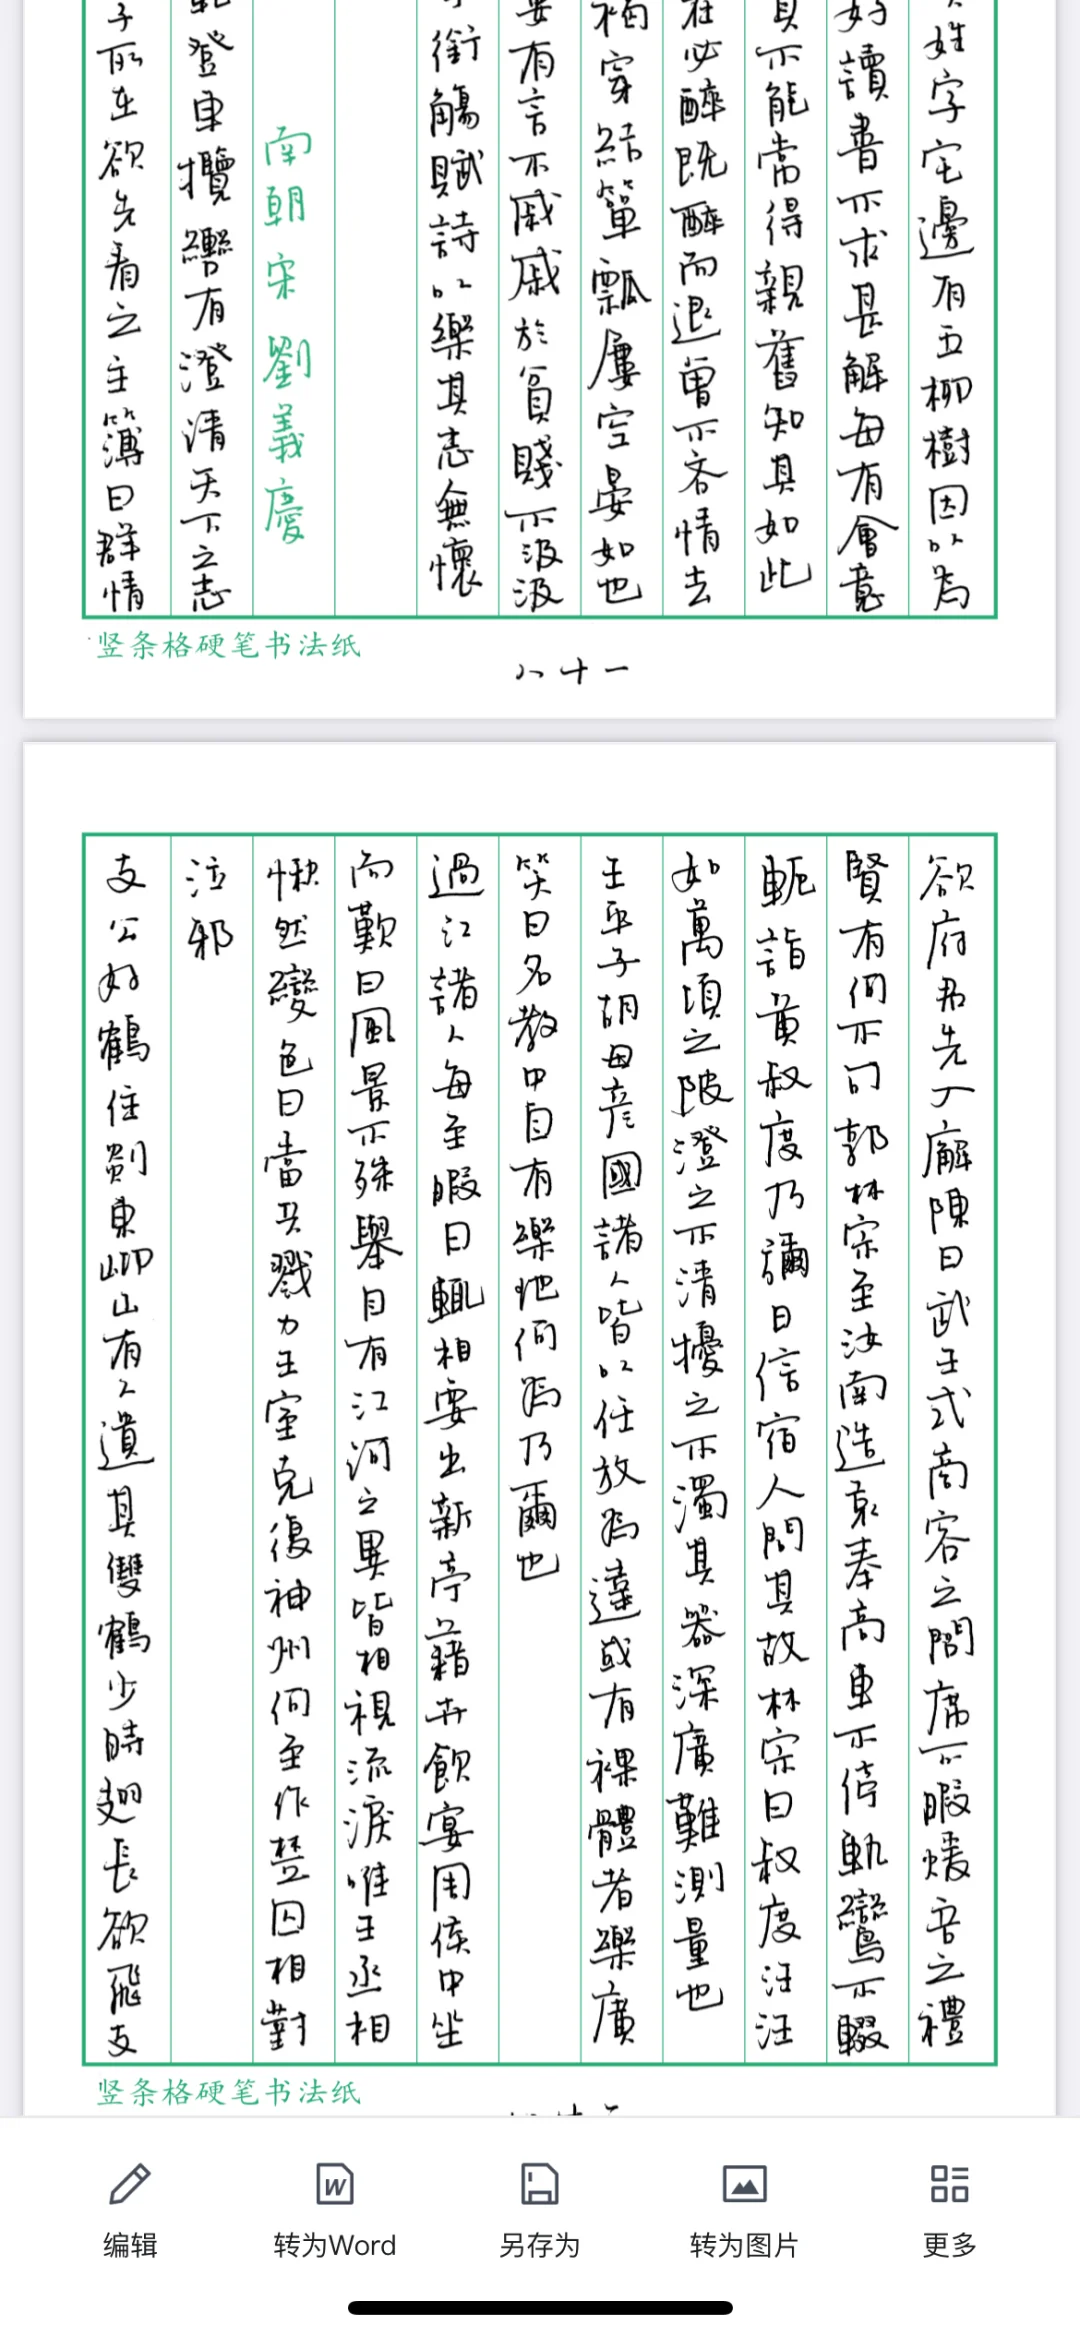 姓字宅邊有五柳樹因以為
好讀書不求甚解每有會意
其不能常得親舊知其如此
在必醉既醉而退曾不吝情去
褐穿結簞瓢屢空晏如也
要有言不戚戚於貧賤不汲汲
銜觴賦詩以樂其志無懷
南朝宋 劉義慶
登車攬轡有澄清天下之志
子所在欲先看之主簿曰群情
竖条格硬笔书法纸
八十一
欲府君先入廨陳曰武王式商容之閭席不暇煖吾之禮
賢有何不可郭林宗至汝南造袁奉高車不停軌鸞不輟
軛詣黃叔度乃彌日信宿人問其故林宗曰叔度汪汪
如萬頃之陂澄之不清擾之不濁其器深廣難測量也
王平子胡毋彥國諸人皆以任放為達或有裸體者樂廣
笑曰名教中自有樂地何為乃爾也
過江諸人每至暇日輒相要出新亭藉卉飲宴周侯中坐
而歎曰風景不殊舉目有江河之異皆相視流淚唯王丞相
愀然變色曰當共戮力王室克復神州何至作楚囚相對
泣邪
支公好鶴住剡東岇山有人遺其雙鶴少時翅長欲飛支
竖条格硬笔书法纸
编辑
转为Word
另存为
转为图片
更多